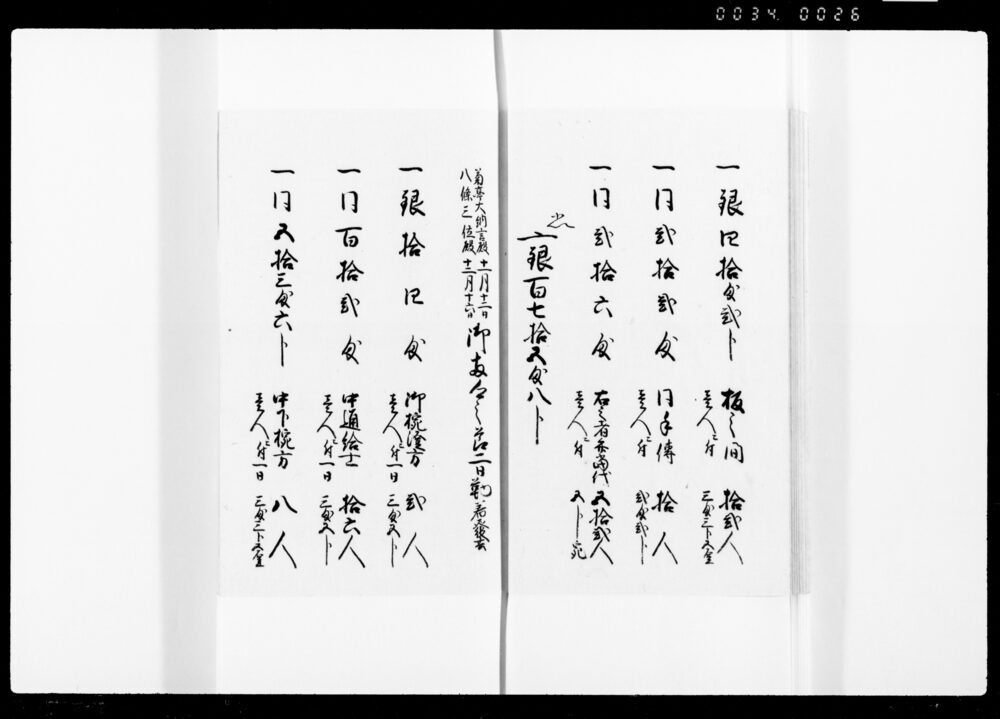 0034 0026
一銀四拾匁弐分 板之間 拾弐人
壱人ニ付 三匁三分五厘
一同弐拾弐匁 同手傳 拾人
壱人ニ付 弐匁弐分
一同弐拾六匁 右之者弁当代 五拾弐人
壱人ニ付 五分宛
銀百七拾五匁八分
菊亭大納言殿 十一月十三日
八條三位殿 十二月十六日
御 之節二日勤
一銀拾四匁 御椀方 弐人
壱人ニ付一日 三匁五分
一同百拾弐匁 中通給士 拾六人
壱人ニ付一日 三匁五分
一同五拾三匁六分 中下椀方 八人
壱人ニ付一日 三匁三分五厘